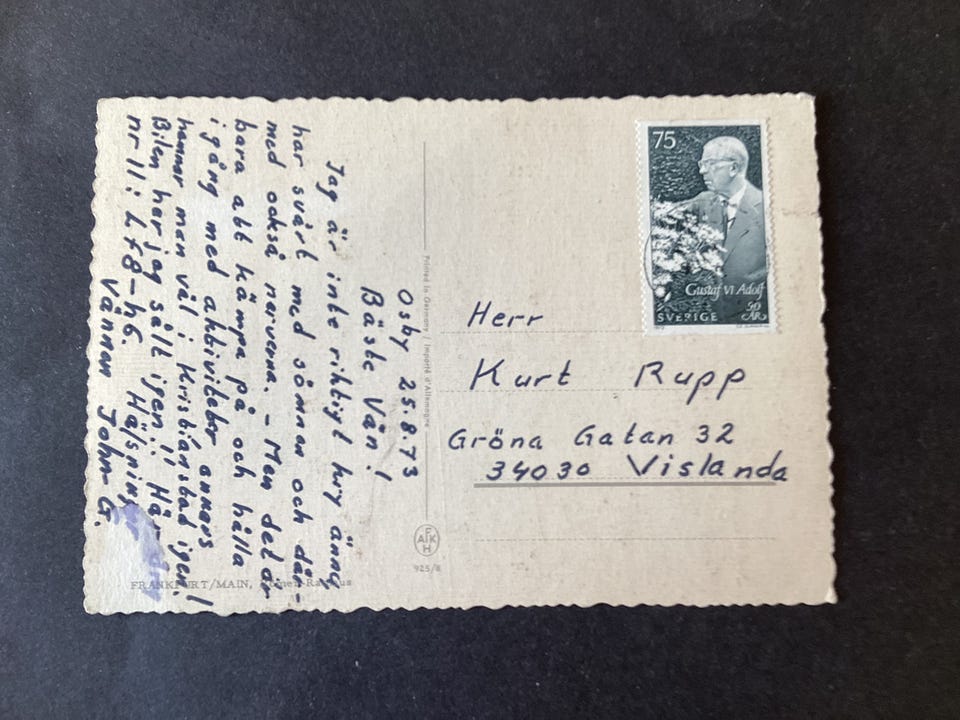 Osby 25.8.73
Bäste Vän!
Jag är inte riktigt kry ännu
har svårt med sömnen och där-
med också nerverna. - Men det är
bara att kämpa på och hålla
igång med aktiviteter annars
hamnar man väl i Kristianstad igen!
Bilen har jag sålt igen!! Här
nr 11: Lf8-h6. Hälsning
Vännen John G.
75
Gustaf VI Adolf
90 ÅR
SVERIGE
Herr
Kurt Rupp
Gröna Gatan 32
34030 Vislanda
Printed in Germany / Importé d'Allemagne
AFKH
925/8
FRANKFURT/MAIN,